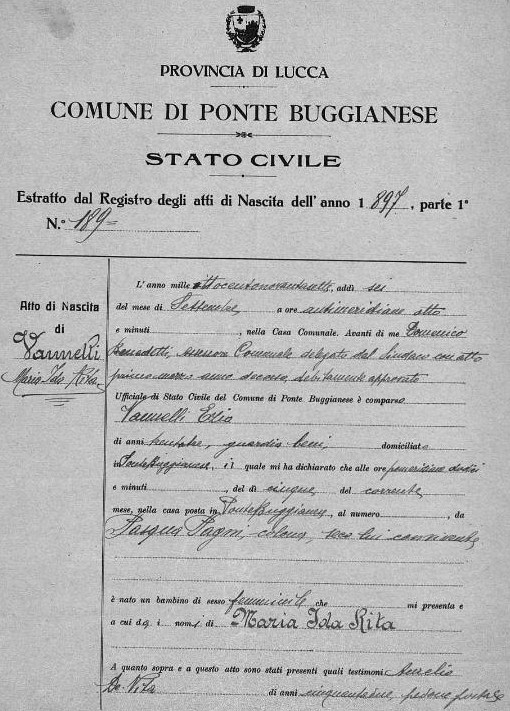 PROVINCIA DI LUCCA
COMUNE DI PONTE BUGGIANESE
STATO CIVILE
Estratto dal Registro degli atti di Nascita dell'anno 1897, parte 1ª
N.° 189=
Atto di Nascita
di
Vannelli
Maria Ida Rita
L'anno mille ottocentonovantasette, addì sei
del mese di Settembre, a ore antimeridiane otto
e minuti, nella Casa Comunale. Avanti di me Domenico
Benedetti, Assessore Comunale delegato dal Sindaco con atto
primo marzo anno decorso, debitamente approvato
Ufficiale di Stato Civile del Comune di Ponte Buggianese è comparso
Vannelli Ezio
di anni trentatre, guardia beni domiciliato
in Ponte Buggianese, il quale mi ha dichiarato che alle ore pomeridiane dodici
e minuti, del dì cinque del corrente
mese, nella casa posta in Ponte Buggianese, al numero, da
Pasqua Pagni, colona, seco lui convivente
è nato un bambino di sesso femminile che mi presenta e
a cui dà i nomi di Maria Ida Rita
A quanto sopra e a questo atto sono stati presenti quali testimoni Aurelio
De Vita di anni cinquantatre, pedone postale